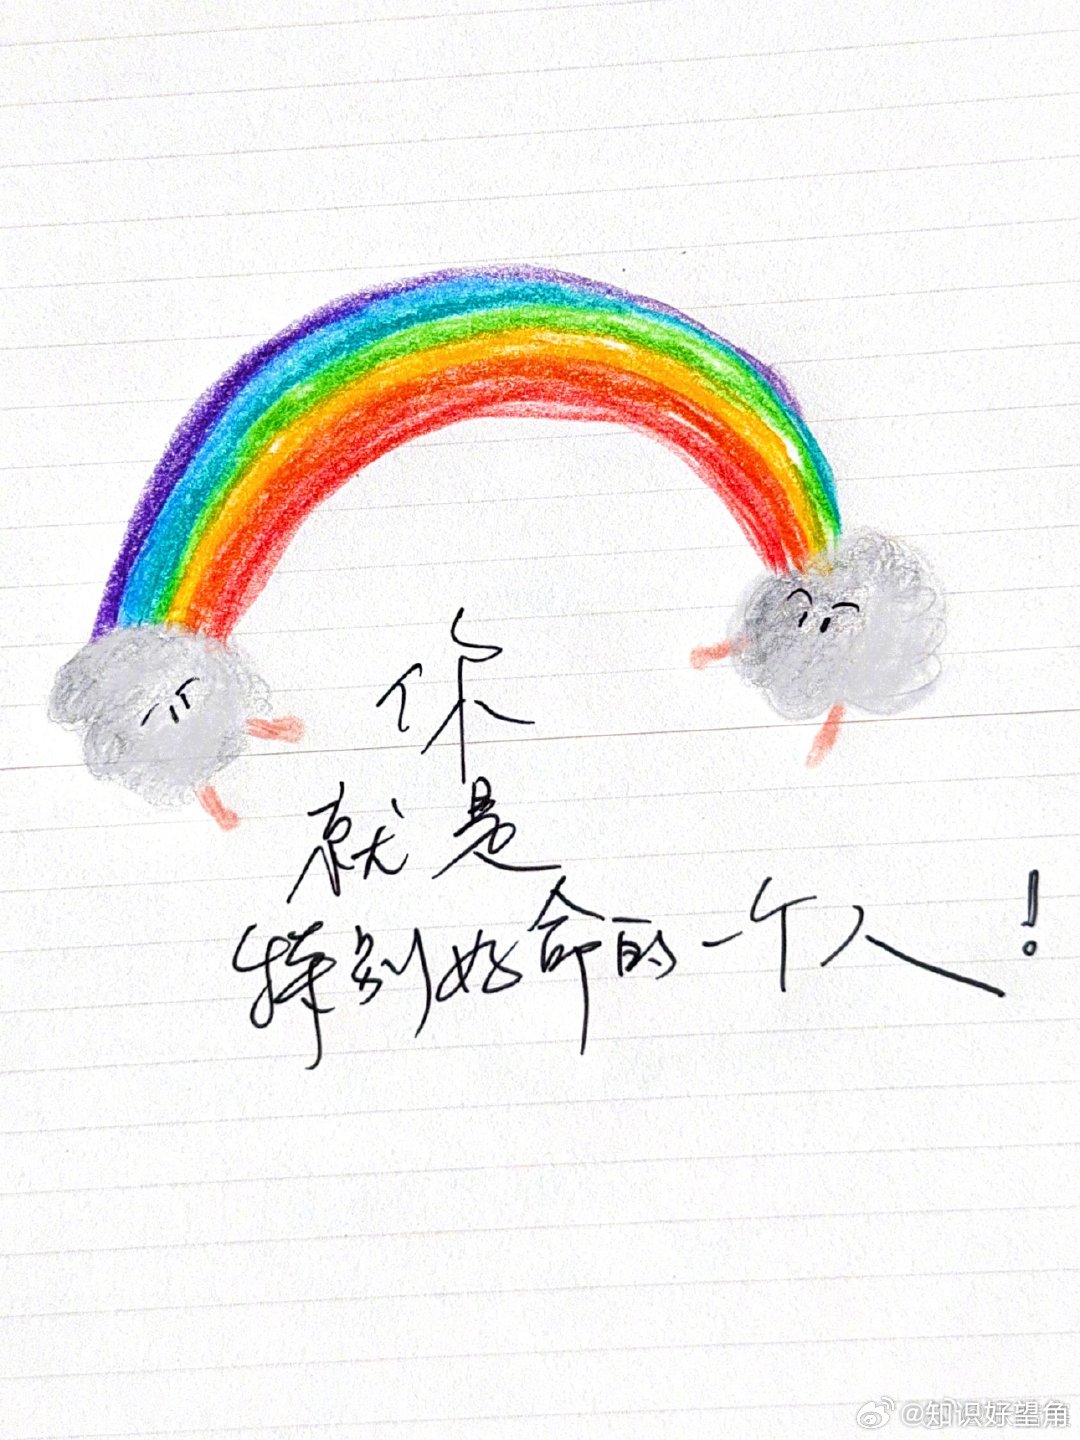 你
就是
特别好命的一个人！
@知识好望角